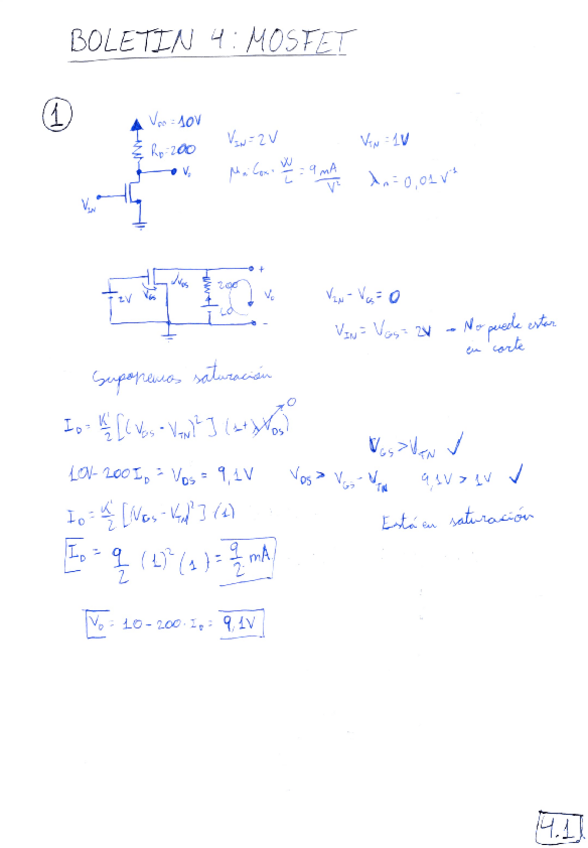 BOLETIN 4: MOSFET
1
V_DD = 10V
R_D = 200
V_o
V_IN
V_IN = 2V
V_TN = 1V
μ_n · C_ox · W/L = 9 mA/V²
λ_n = 0,01 V⁻¹
2V
V_GS
V_DS
200
10
V_o
+
-
V_IN - V_GS = 0
V_IN = V_GS = 2V → No puede estar
en corte
Suponemos saturación
I_D = K'/2 [(V_GS - V_TN)²] (1 + λ V_DS) 0
V_GS > V_TN ✓
10V - 200 I_D = V_DS = 9,1V
V_DS > V_GS - V_TN 9,1V > 1V ✓
I_D = K'/2 [(V_GS - V_TN)²] (1)
Está en saturación
I_D = 9/2 (1)² (1) = 9/2 mA
V_o = 10 - 200 · I_D = 9,1V
4.1